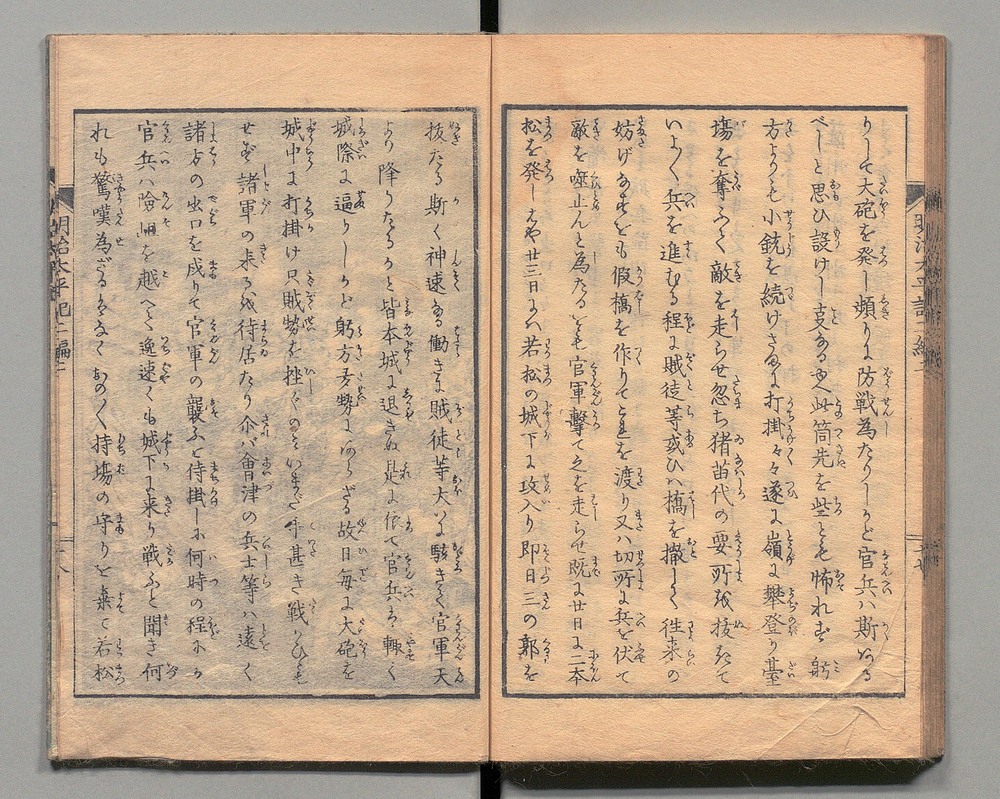 りして大砲を発し頻りに防戦為たりしかど官兵ハ斯かる
べしと思ひ設けし支ある也此筒先を些とも怖れず躬
方よりも小銃を続けさまに打掛々々遂に嶺に攀登り台
場を奪ふて敵を走らせ忽ち猪苗代の要所を抜きて
いよ〳〵兵を進むる程に賊徒等或ひハ橋を撤して往来の
妨げなせども假橋を作りてこれを渡り又ハ切所に兵を伏て
敵を喰止んと為たるも官軍撃て之を走らせ既に廿日に二本
松を発しはや廿三日にハ若松の城下に攻入り即日三の郭を
抜たる斯く神速なる働きに賊徒等大いに駭きて官軍天
より降りたるかと皆本城に退きぬ是に依て官兵ハ輙く
城際に逼りしかど躬方多勢にあらざる故日毎に大砲を
城中に打掛け只賊勢を挫くのミいまだ甚き戦ひも
せず諸軍の来るを待居たり介バ會津の兵士等ハ遠く
諸方の出口を戍りて官軍の襲ふと待掛しに何時の程にか
官兵ハ険岨を越へて逸速くも城下に来り戦ふと聞き何
れも驚嘆為ざるハなくておの〳〵持場の守りを棄て若松
明治太平記二編二
明治太平記二編二